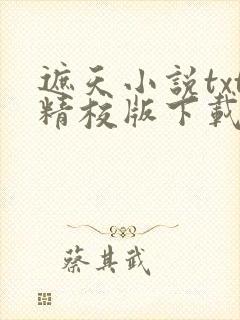 遮天小説txt
精校版下載
蔡其武